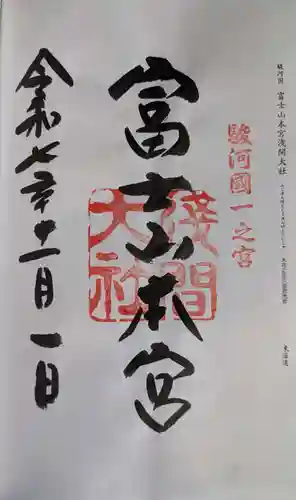 駿河国 富士山本宮浅間大社
東海道
駿河國一之宮
富士山本宮
淺間大社
令和七年十一月一日